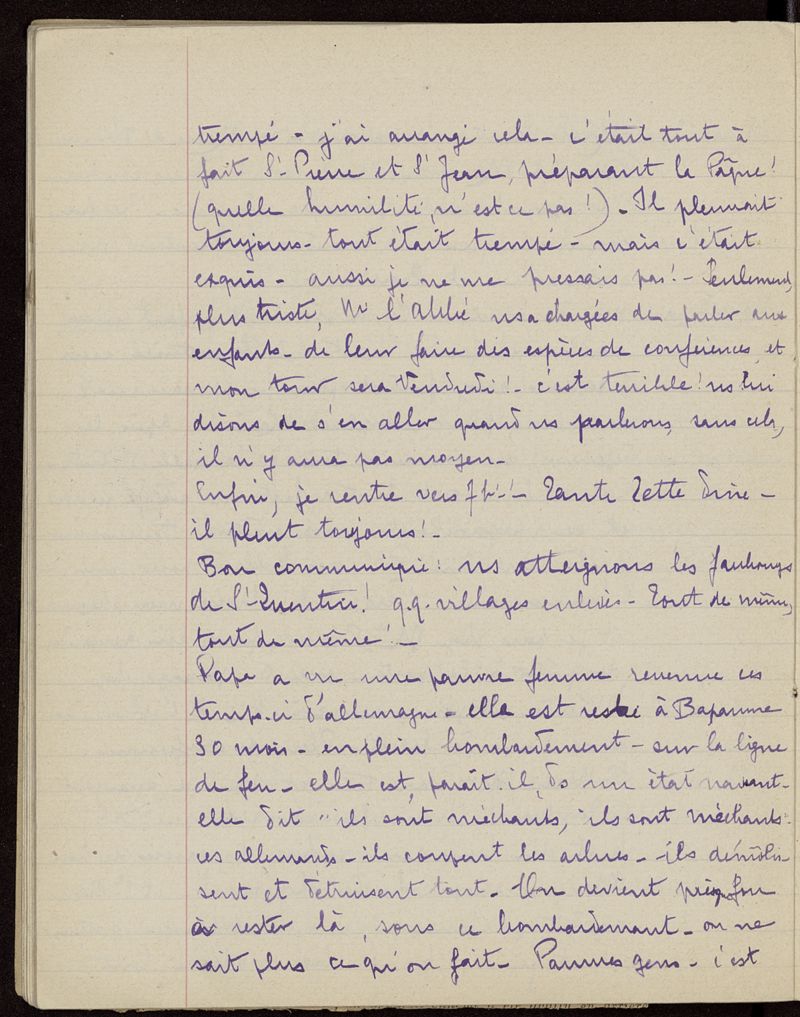 trempé - j'ai arrangé cela - c'était tout à
fait St Pierre et St Jean, préparant la Pâque!
(quelle humilité, n'est ce pas!) - Il pleuvait
toujours - tout était trempé - mais c'était
exquis - aussi je ne me pressais pas! - Seulement,
plus triste, Mr l'Abbé ns a chargées de parler aux
enfants - de leur faire des espèces de conférences, et
mon tour sera Vendredi! - c'est terrible! ns lui
disons de s'en aller quand ns parlerons, sans cela,
il n'y aura pas moyen -
Enfin, je rentre vers 7h!! - Tante Zette dîne -
il pleut toujours! -
Bon communiqué: ns atteignons les faubourgs
de St-Quentin! q.q. villages enlevés - Tout de même,
tout de même! -
Papa a vu une pauvre femme revenue ces
temps-ci d'allemagne - elle est restée à Bapaume
30 mois - en plein bombardement - sur la ligne
de feu - elle est, paraît-il, ds un état navrant -
elle dit "ils sont méchants, ils sont méchants"
ces allemands - ils coupent les arbres - ils démolis-
sent et détruisent tout - On devient presque fou
à rester là, sous ce bombardement - on ne
sait plus ce qu'on fait - Pauvres gens - c'est